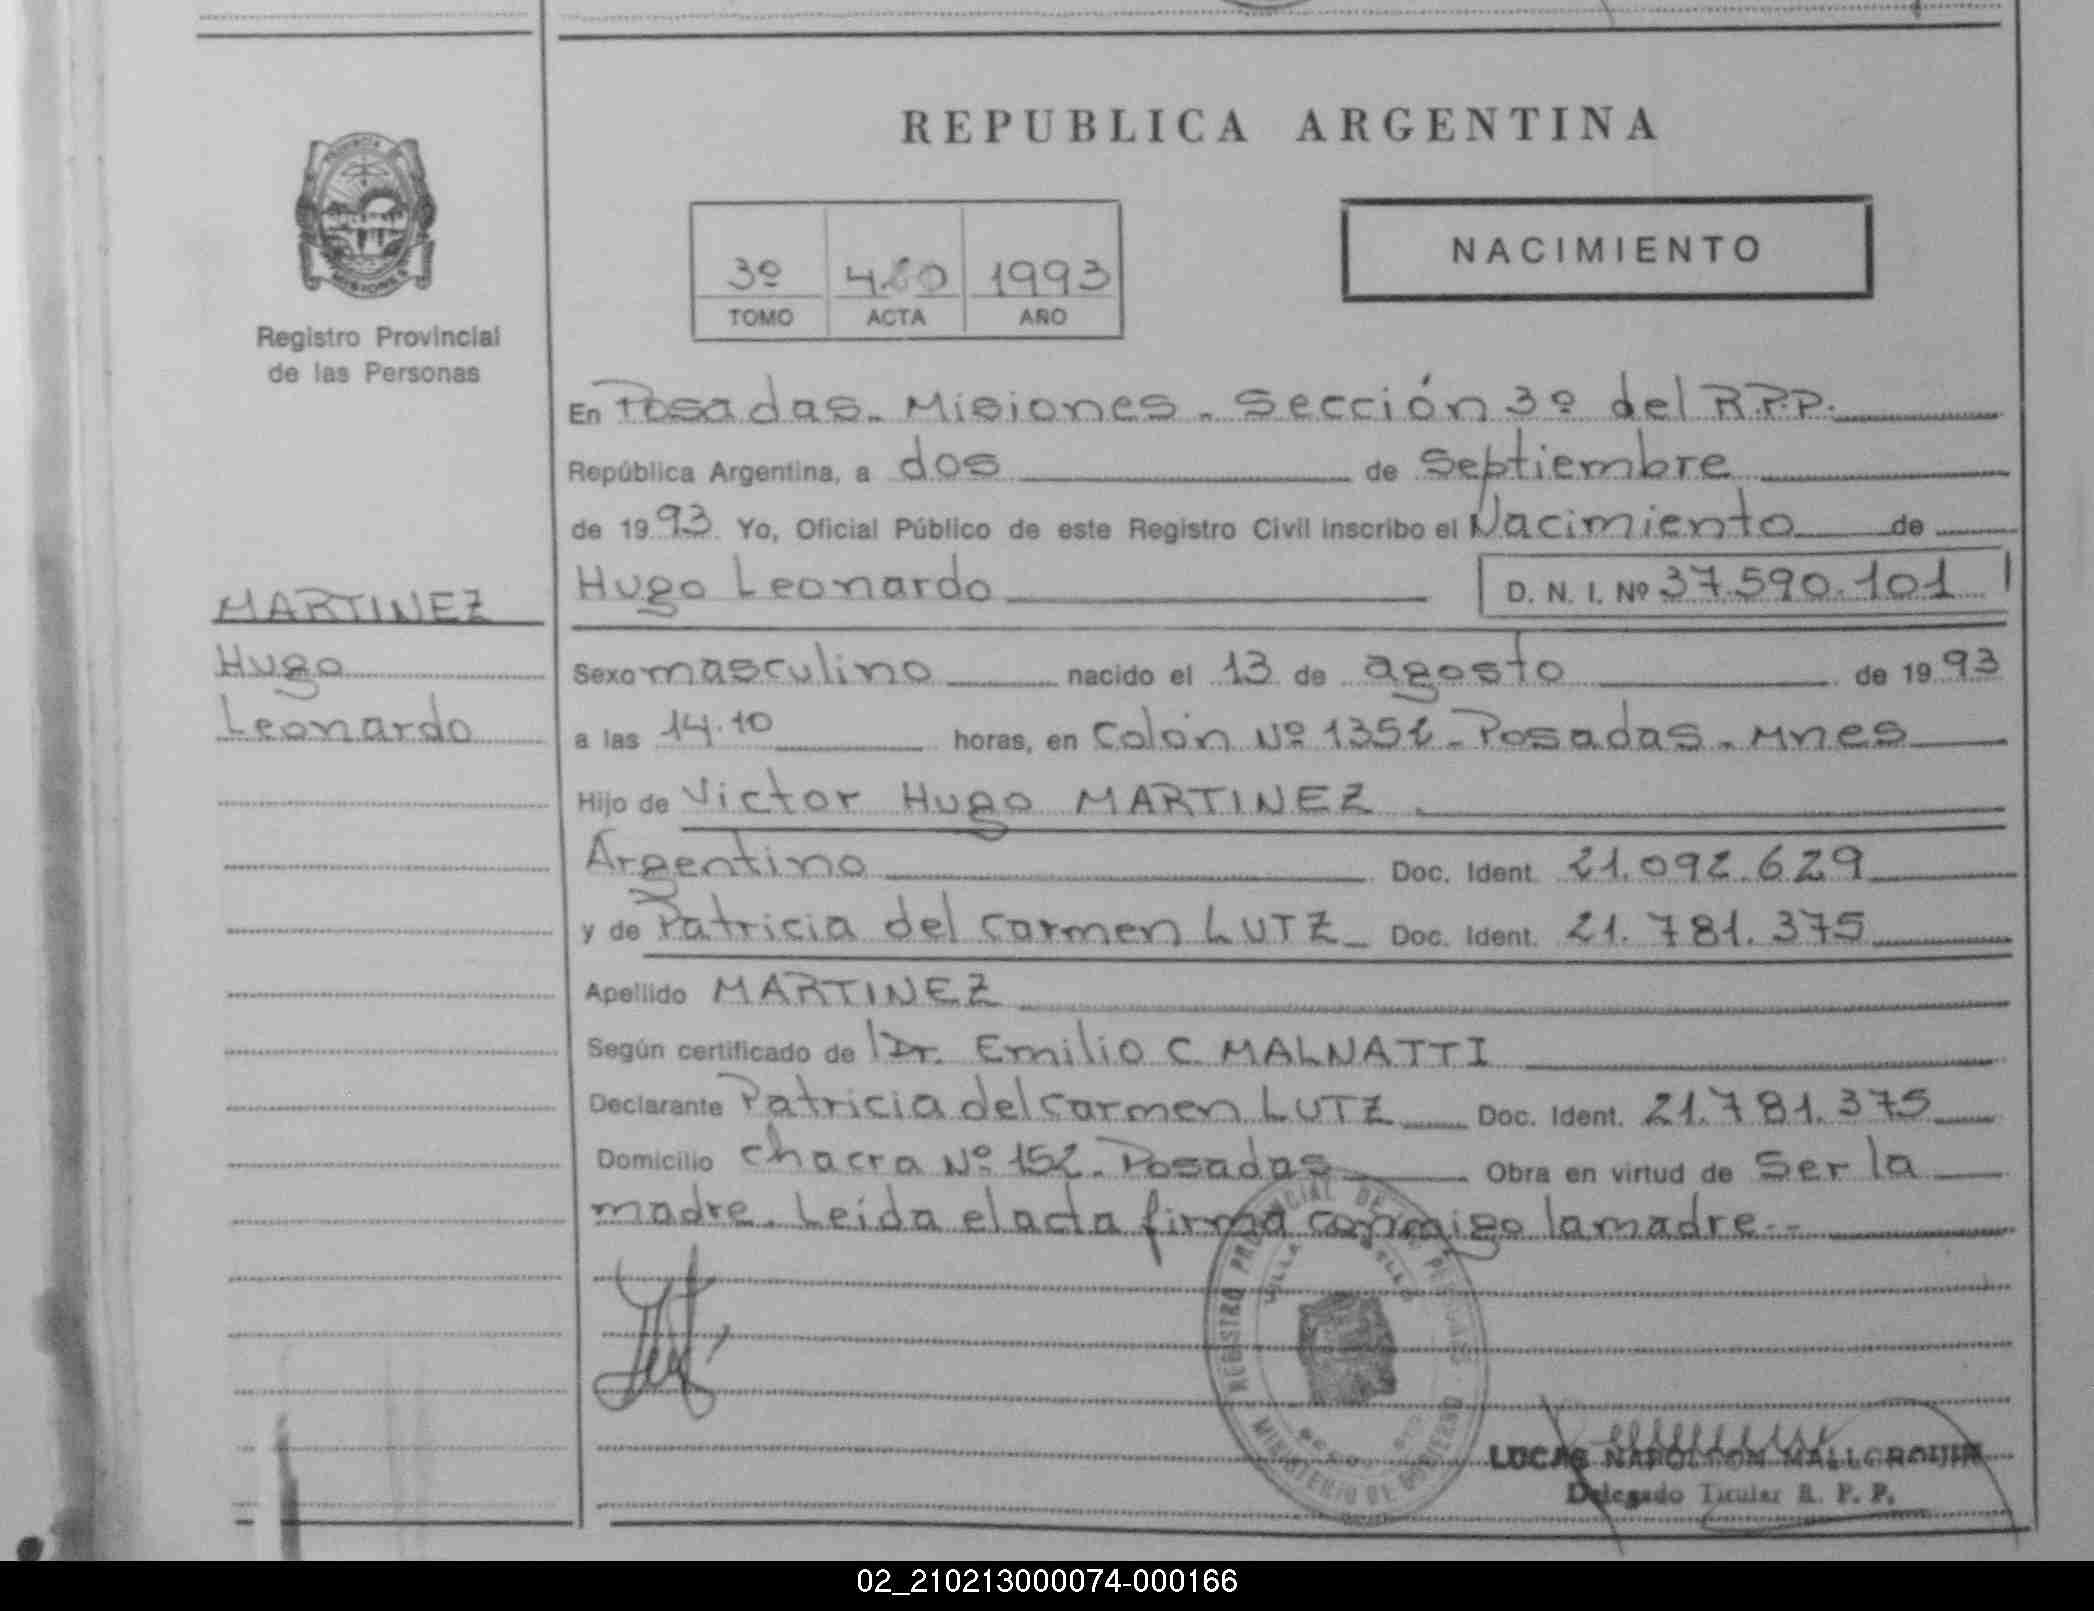 REPUBLICA ARGENTINA
NACIMIENTO
3º 1993
TOMO ACTA AÑO
Registro Provincial
de las Personas
MARTINEZ
Hugo
Leonardo
En Posadas - Misiones - Sección 3º del R.P.P.
República Argentina, a dos de Septiembre
de 1993 Yo, Oficial Público de este Registro Civil inscribo el Nacimiento de
Hugo Leonardo D. N. I. Nº 37.590.101
Sexo masculino nacido el 13 de agosto de 1993
a las 14.10 horas, en Colón Nº 1352 - Posadas - Mnes
Hijo de Victor Hugo MARTINEZ
Argentino Doc. Ident. 21.092.629
y de Patricia del Carmen LUTZ - Doc. Ident. 21.781.375
Apellido MARTINEZ
Según certificado de Dr. Emilio C. MALNATTI
Declarante Patricia del Carmen LUTZ Doc. Ident. 21.781.375
Domicilio Chacra Nº 152 - Posadas Obra en virtud de Ser la
madre. Leída el acta firma conmigo la madre.-
REGISTRO PROVINCIAL DE LAS PERSONAS
MINISTERIO DE GOBIERNO
LUCAS NAPOLEON
Delegado Titular R. P. P.
02_210213000074-000166